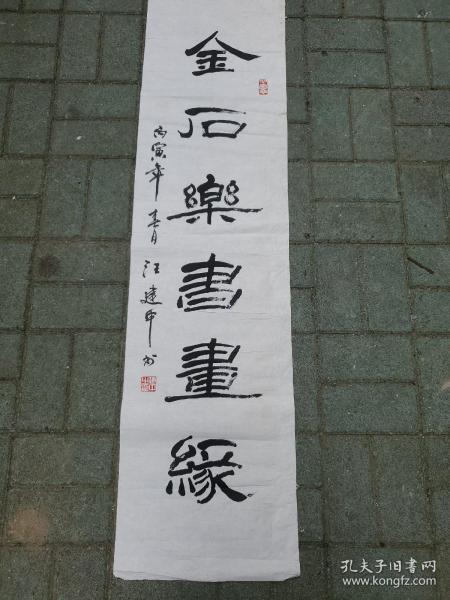 金石樂書畫緣
丙寅年春月汪建中书
孔夫子旧书网
www.kongfz.com